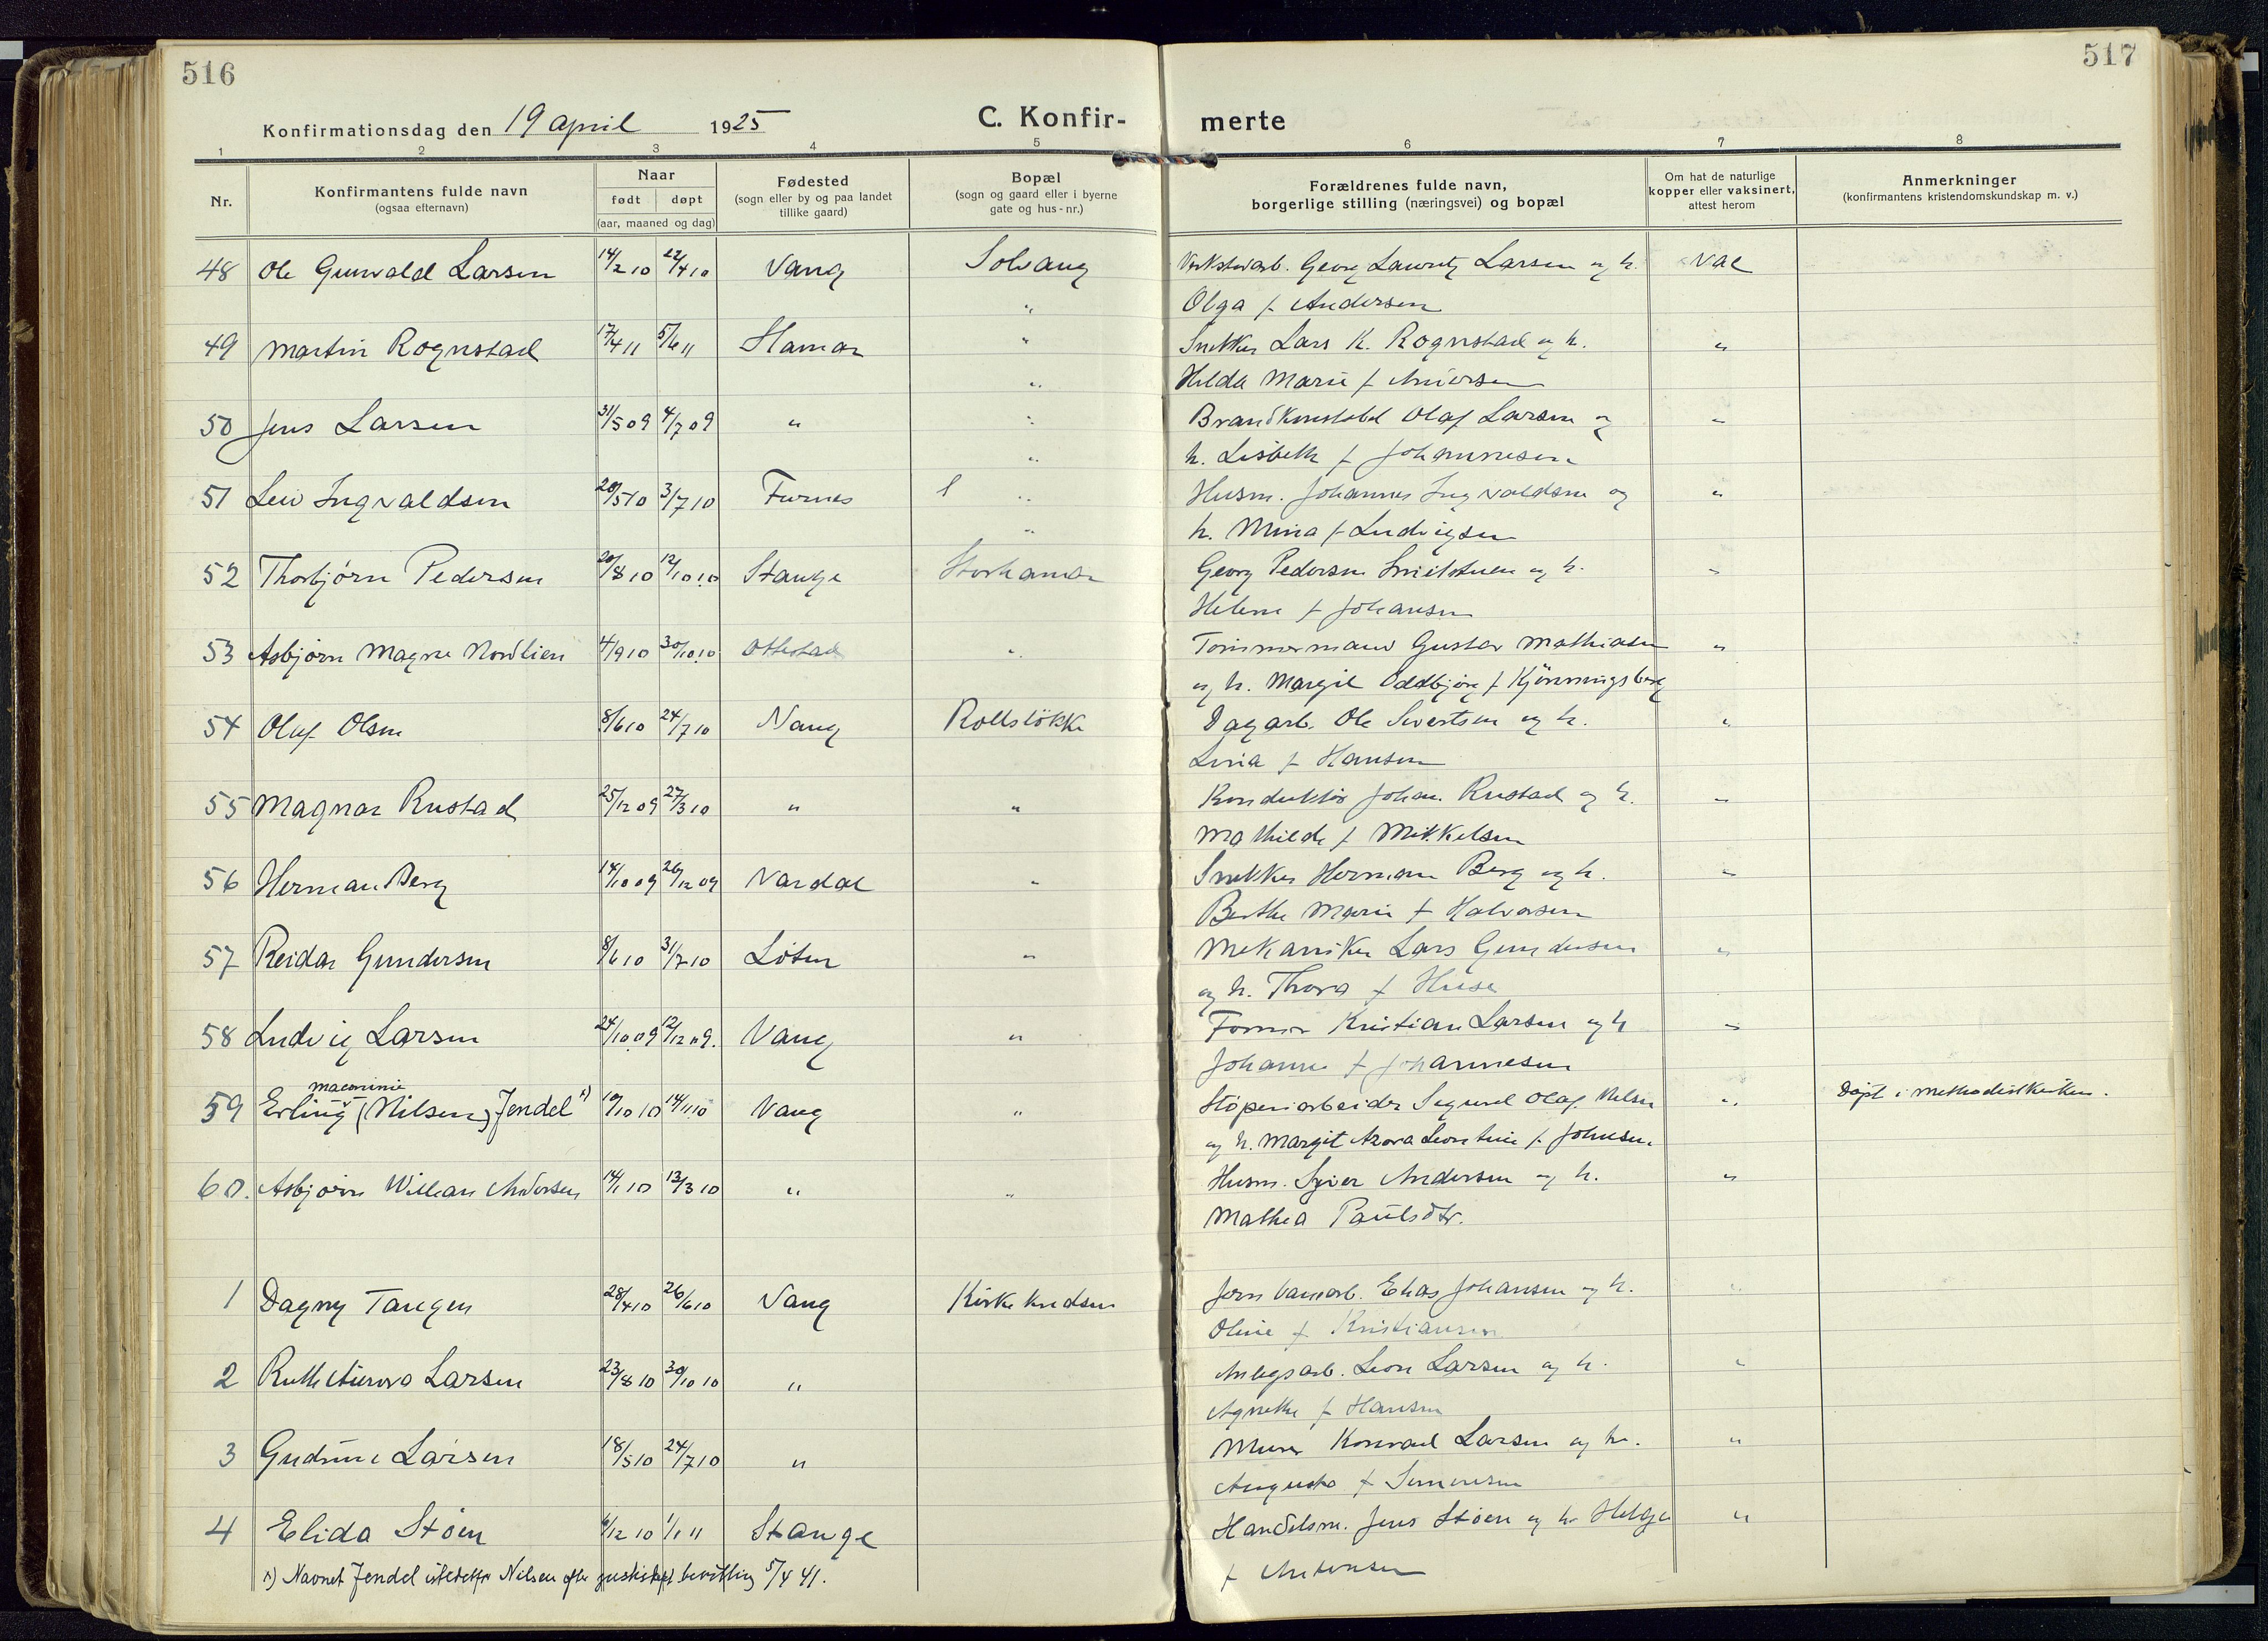 516
517
Konfirmationsdag den 19 april 1925
C. Konfir-
merte
1 2 3 4 5 6 7 8
Nr.
Konfirmantens fulde navn
(ogsaa efternavn)
Naar
født døpt
(aar, maaned og dag)
Fødested
(sogn eller by og paa landet
tillike gaard)
Bopæl
(sogn og gaard eller i byerne
gate og hus-nr.)
Forældrenes fulde navn,
borgerlige stilling (næringsvei) og bopæl
Om hat de naturlige
kopper eller vaksinert,
attest herom
Anmerkninger
(konfirmantens kristendomskundskap m. v.)
48 Ole Gunvald Larsen 14/2 10 22/4 10 Vang Solvang Verkstedarb. Georg Lauritz Larsen og h. Vac
" Olga f Andersen
49 Martin Rognstad 17/4 11 5/6 11 Hamar " Snekker Lars K. Rognstad og h. "
" Hilda Marie f
50 Jens Larsen 31/5 09 4/7 09 " " Brandkonstabel Olaf Larsen og "
" h. Lisbeth f Johannesen
51 Leiv Ingvaldsen 28/5 10 3/7 10 Furnes " Husm. Johannes Ingvaldsen og "
" h. Mina f Ludvigsen
52 Thorbjørn Pedersen 20/8 10 12/10 10 Stange Storhamar Georg Pedersen og h. "
Helene f Johansen
53 Asbjørn Magne Nordlien 4/9 10 30/10 10 Ottestad " Tømmermand Gustav Mathiasen "
og h. Margit Oddbjørg f Kjønningsberg
54 Oluf Olsen 8/6 10 24/7 10 Vang Rollsløkke Dagarb. Ole Sivertsen og h. "
Lina f Hansen
55 Magnar Rustad 25/12 09 27/3 10 " " Konduktør Johan Rustad og h. "
Mathilde f Mikkelsen
56 Herman Berg 14/10 09 26/12 09 Vardal " Snekker Herman Berg og h. "
Berthe Marie f Halvorsen
57 Reidar Gundersen 8/6 10 31/7 10 Løten " Mekaniker Lars Gundersen "
og h. Thora f Huse
58 Ludvig Larsen 24/10 09 12/12 09. Vang " Former Kristian Larsen og h "
Johanne f Johannesen
59 Erling (Nilsen) Jendel ¹) 10/10 10 14/11 10 Vang " Støperiarbeider Sigurd Olaf Nilsen " Døpt i Methodistkirken.
og h. Margit Azora Leontine f Johnsen
60. Asbjørn William Andersen 14/1 10 13/3 10 " " Husm. Syver Andersen og h. "
Mathea Paulsdtr.
1 Dagny Tangen 28/4 10 26/6 10 Vang Kirkekudsen Jernbanearb. Elias Johansen og h. "
Oline f Kristiansen
2 Ruth Aurora Larsen 23/8 10 30/10 10 " Anlegsarb. Leon Larsen og h. "
Agnethe f Hansen
3 Gudrun Larsen 18/5 10 24/7 10 " Murer Konrad Larsen og h. "
Augusta f Simensen
4 Elida Støen 6/12 10 1/1 11 Stange Handelsm. Jens Støen og h. Helga "
f Antonsen
¹) Navnet Jendel istedetfor Nilsen efter justisdept bevilling 5/4 41.